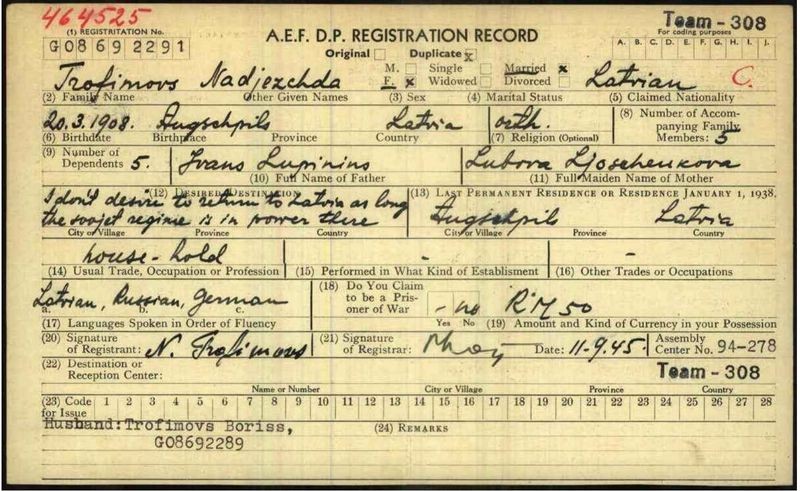 464525
Team - 308
(1) REGISTRATION No.
G08692291
A.E.F. D.P. REGISTRATION RECORD
For coding purposes
A. B. C. D. E. F. G. H. I. J.
Original Duplicate x
M. Single Married x
F. x Widowed Divorced
Trofimovs Nadjezchda Latvian C.
(2) Family Name Other Given Names (3) Sex (4) Marital Status (5) Claimed Nationality
20.3.1908. Augschpils Latvia orth.
(6) Birthdate Birthplace Province Country (7) Religion (Optional)
(8) Number of Accompanying Family Members: 5
(9) Number of Dependents 5.
Ivans Lupinins
(10) Full Name of Father
Lubova Ljoschenkova
(11) Full Maiden Name of Mother
(12) DESIRED DESTINATION
I don't desire to return to Latvia as long
the sovjet regime is in power there
City or Village Province Country
(13) LAST PERMANENT RESIDENCE OR RESIDENCE JANUARY 1, 1938.
Augschpils Latvia
City or Village Province Country
house-hold - -
(14) Usual Trade, Occupation or Profession (15) Performed in What Kind of Establisment (16) Other Trades or Occupations
Latvian, Russian, German
a. b. c.
(17) Languages Spoken in Order of Fluency
(18) Do You Claim to be a Prisoner of War
- no
Yes No
RM 50
(19) Amount and Kind of Currency in your Possession
(20) Signature of Registrant: N. Trofimovs
(21) Signature of Registrar:
Date: 11-9.45.
Assembly Center No. 94-278
(22) Destination or Reception Center:
Team - 308
Name or Number City or Village Province Country
(23) Code for Issue 1 2 3 4 5 6 7 8 9 10 11 12 13 14 15 16 17 18 19 20 21 22 23 24 25 26 27 28
Husband: Trofimovs Boriss,
G08692289
(24) REMARKS